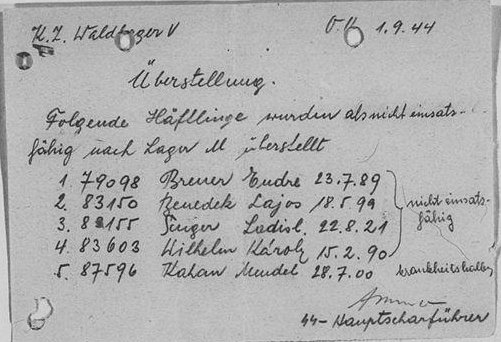 K.Z. Waldlager V 1.9.44
Überstellung.
Folgende Häftlinge wurden als nicht einsats-
fähig nach Lager M überstellt
1. 79098 Brener Endre 23.7.89
2. 83150 Benedek Lajos 18.5.99 nicht einsats-
3. 83155 Singer Ladisl. 22.8.21 fähig
4. 83603 Wilhelm Károly 15.2.90
5. 87596 Kahan Mendel 28.7.00 krankheitshalber
SS-Hauptscharführer